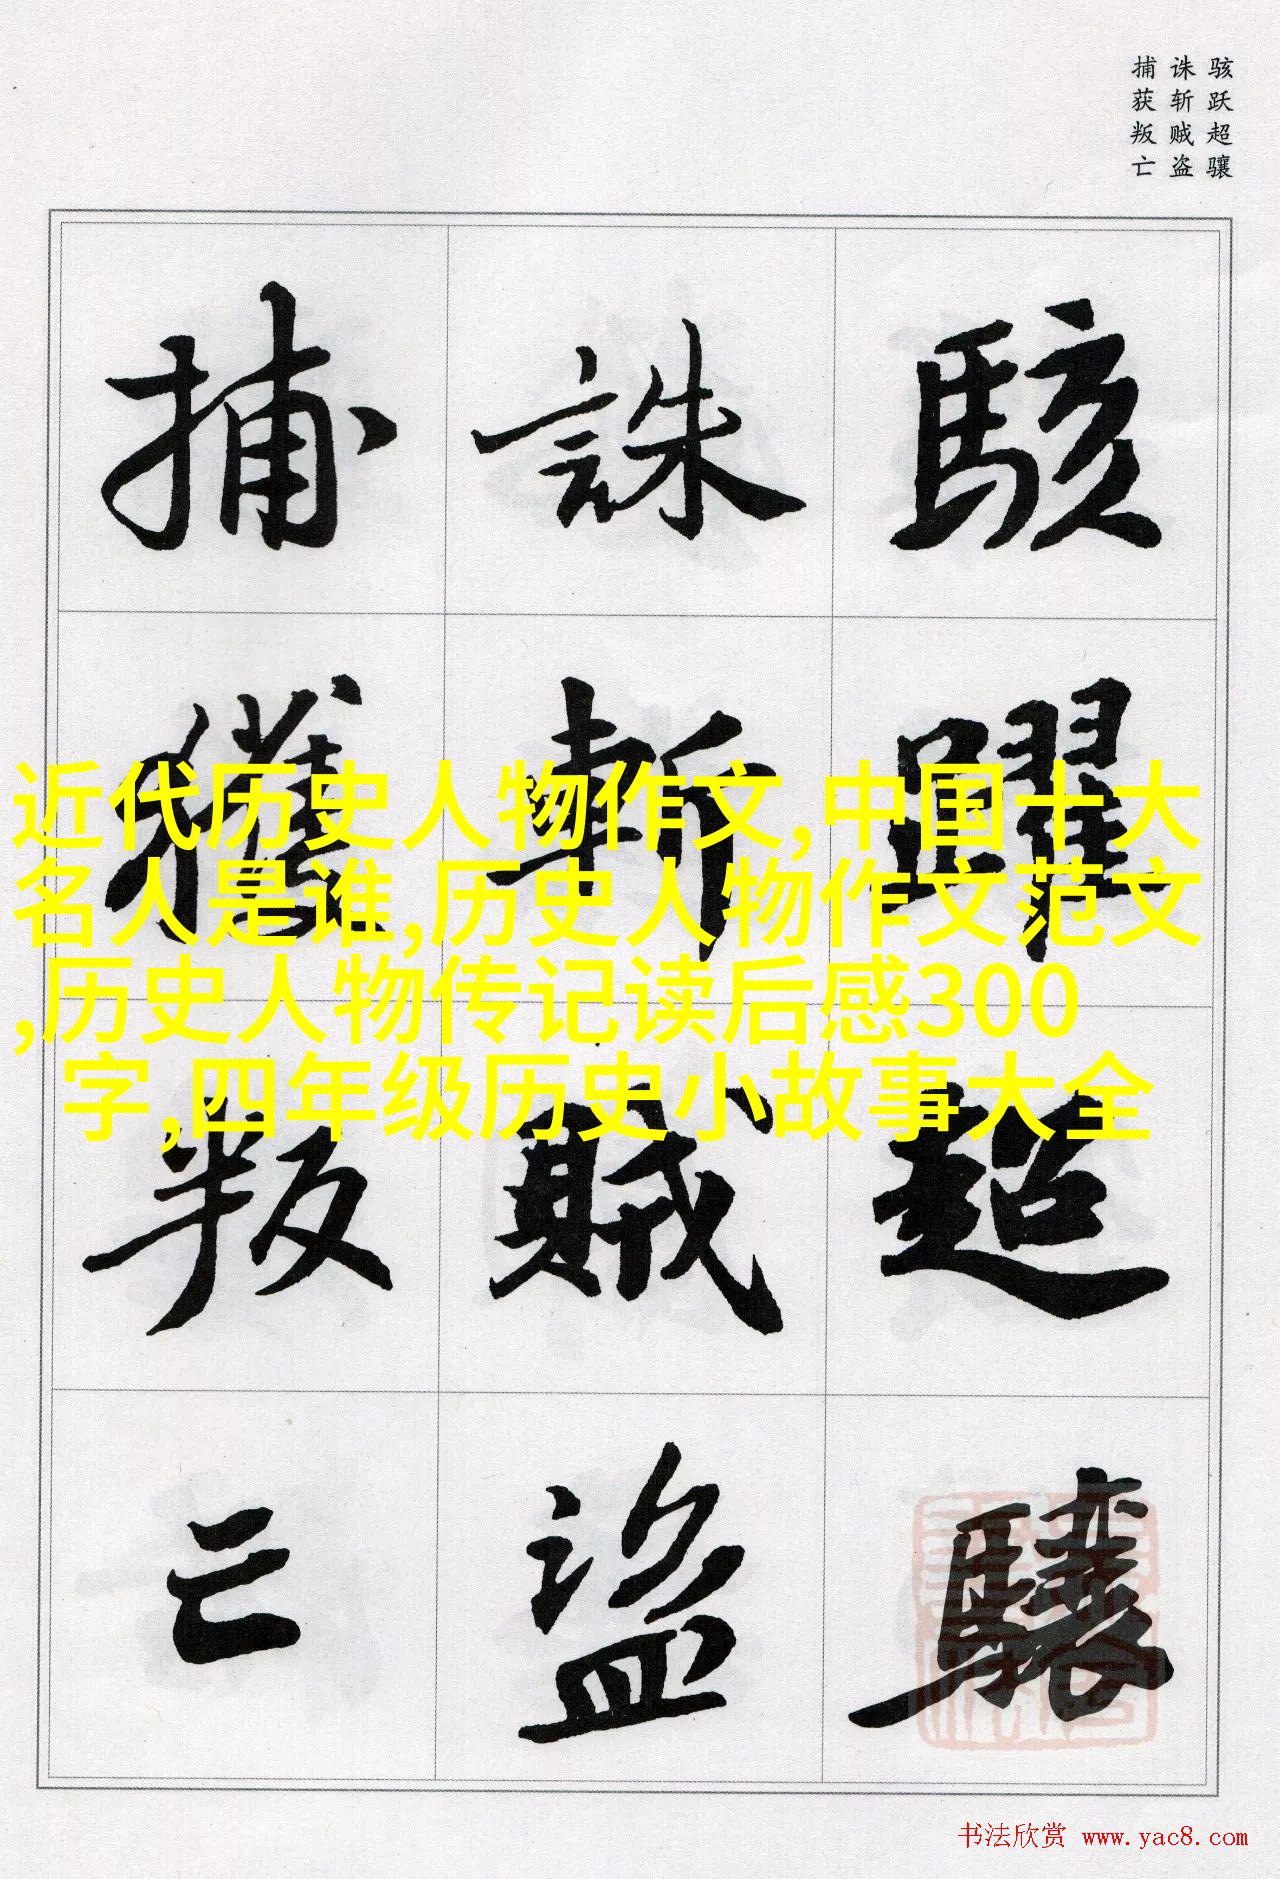 骇跃超骧
诛斩贼盗
捕获叛亡
駭躍超驤
誅斬賊盜
捕獲叛亡
近代历史人物作文,中国十大
名人是谁,历史人物作文范文
,历史人物传记读后感300
字,四年级历史小故事大全
书法欣赏 www.yac8.com